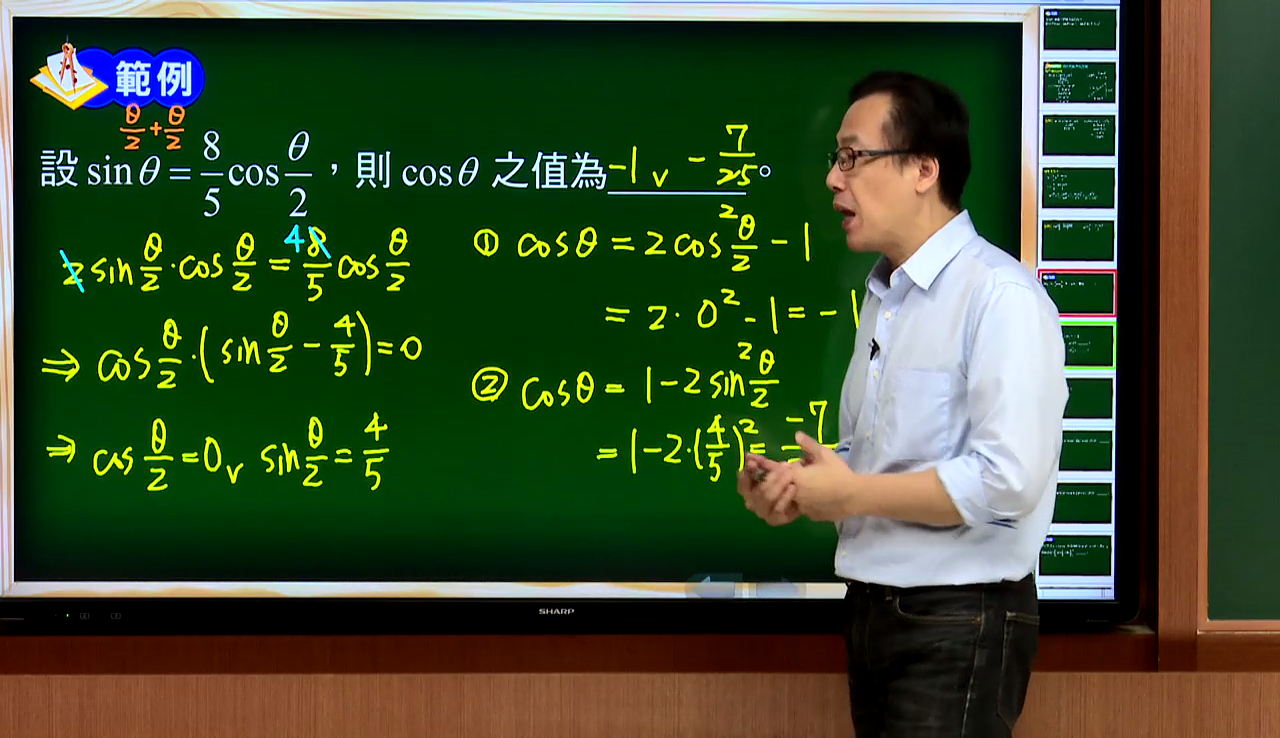 範例
θ/2 + θ/2
設 sin θ = 8/5 cos θ/2，則 cos θ 之值為 -1 ∨ - 7/25。
2 sin θ/2 · cos θ/2 = 8/5 cos θ/2
4
⇒ cos θ/2 · (sin θ/2 - 4/5) = 0
⇒ cos θ/2 = 0 ∨ sin θ/2 = 4/5
① cosθ = 2 cos² θ/2 - 1
= 2 · 0² - 1 = -1
② cosθ = 1 - 2 sin² θ/2
= 1 - 2 · (4/5)² = -7
SHARP